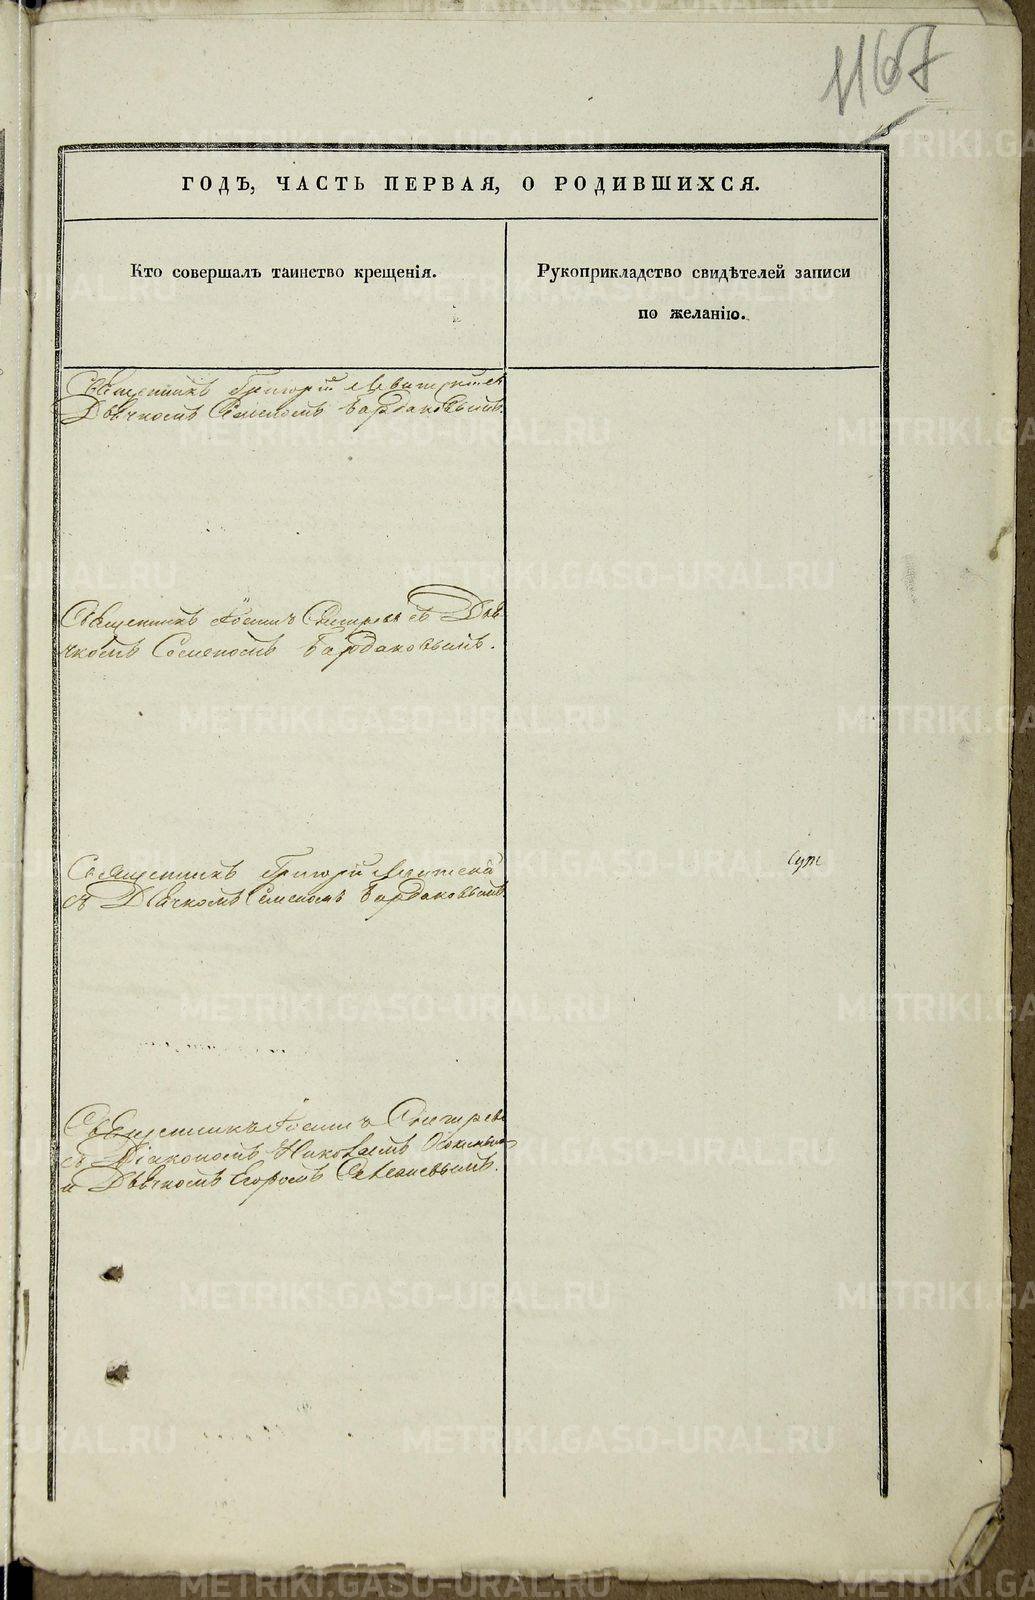 1167
ГОДЪ, ЧАСТЬ ПЕРВАЯ, О РОДИВШИХСЯ.
Кто совершалъ таинство крещенія.
Рукоприкладство свидѣтелей записи
по желанію.
Священникъ Григорій Левитскій съ
Дьячкомъ Семеномъ Бардаковымъ.
Священникъ Іоаннъ съ Дья-
чкомъ Семеномъ Бардаковымъ.
Священникъ Григорій
съ Дьячкомъ Семеномъ Бардаковымъ.
Священникъ Іоаннъ
съ Діакономъ Николаемъ
и Дьячкомъ Егоромъ
METRIKI.GASO-URAL.RU